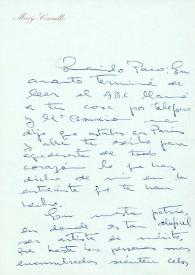 Mary Carrillo
Querido Paco: En
cuanto terminé de
leer el A.B.C llamé
a tu casa por teléfono
y la Asunción me
dijo que estabas en París
y así te escribo para
agradecerte de todo
corazón lo que has
dicho de mí en la
entrevista que te han
hecho.
En nuestra patria,
en donde es tan difícil
ser artista
que hasta las personas
encumbradas sienten celos